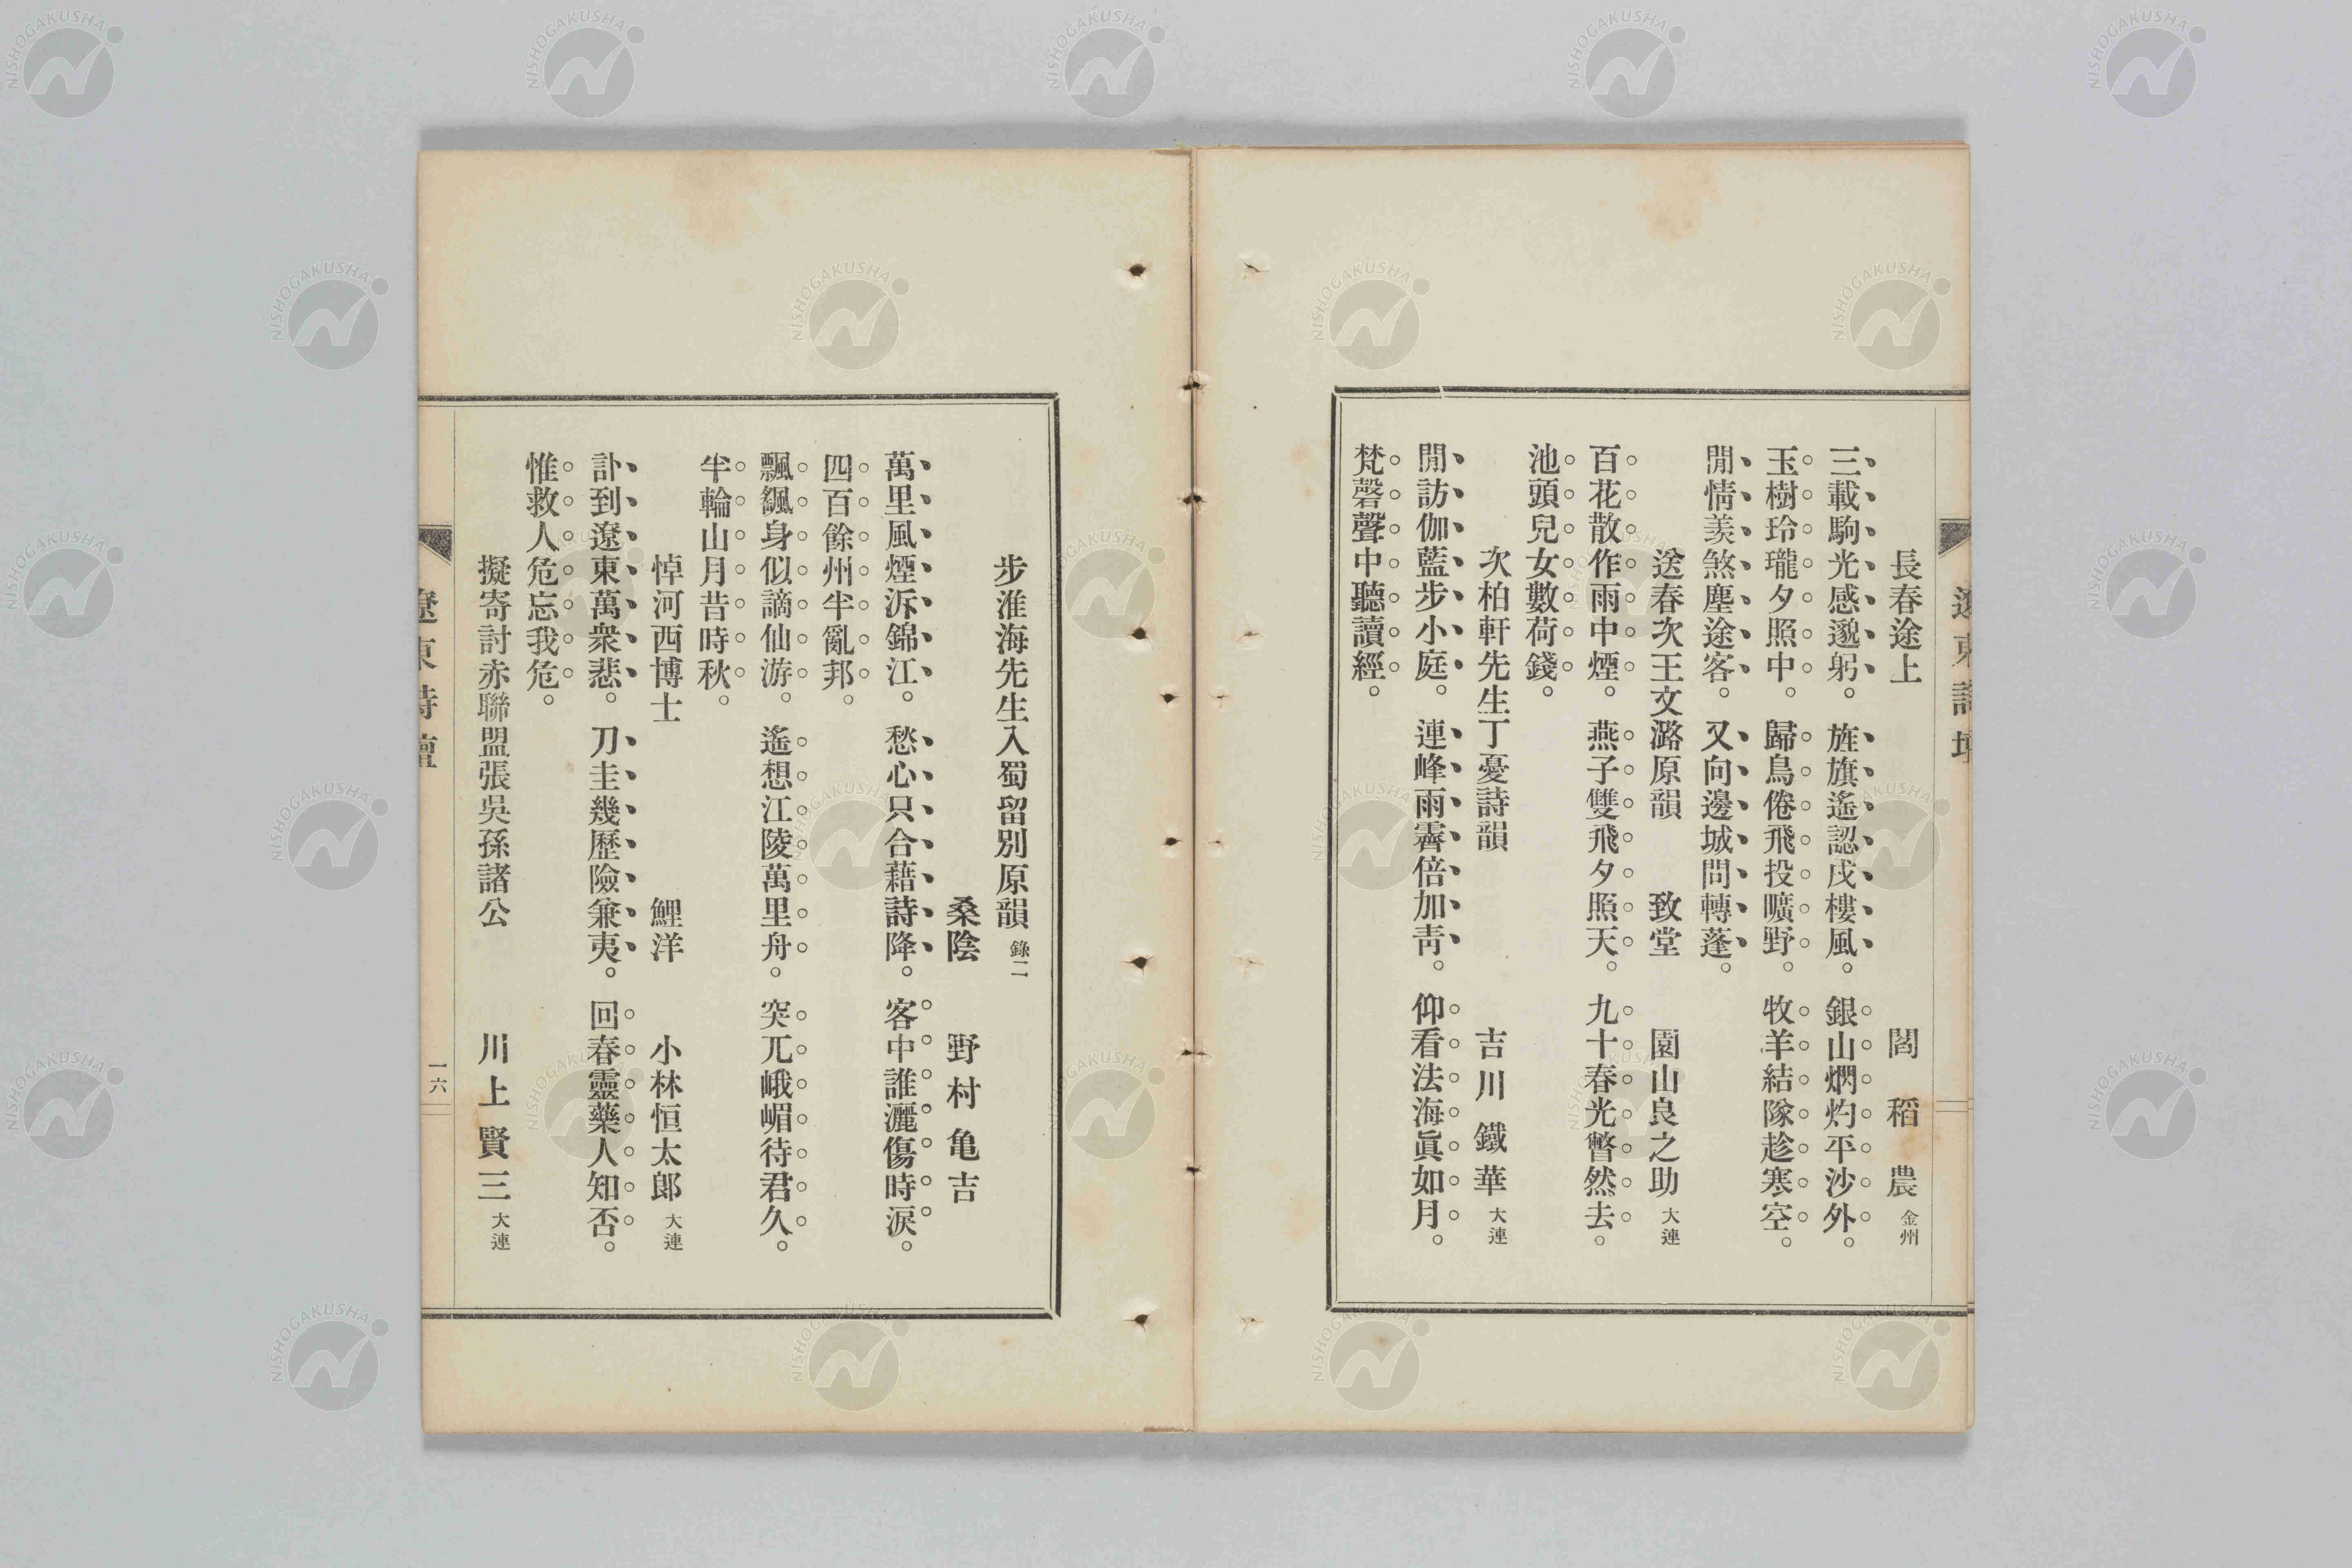 遼東詩壇
長春途上　閻稻農 金州
三載駒光感邈躬。旌旗遙認戌樓風。銀山爛灼平沙外。
玉樹玲瓏夕照中。歸鳥倦飛投曠野。牧羊結隊趁寒空。
閒情羨煞塵途客。又向邊城問轉蓬。
送春次王文潞原韻　致堂　園山良之助 大連
百花散作雨中煙。燕子雙飛夕照天。九十春光瞥然去。
池頭兒女數荷錢。
次柏軒先生丁憂詩韻　吉川鐵華 大連
閒訪伽藍步小庭。連峰雨霽倍加靑。仰看法海眞如月。
梵磬聲中聽讀經。
步淮海先生入蜀留別原韻 錄二
桑陰　野村亀吉
萬里風煙泝錦江。愁心只合藉詩降。客中誰灑傷時淚。
四百餘州半亂邦。
飄颻身似謫仙游。遙想江陵萬里舟。突兀峨嵋待君久。
半輪山月昔時秋。
悼河西博士　鯉洋　小林恒太郎 大連
訃到遼東萬衆悲。刀圭幾歷險兼夷。回春靈藥人知否。
惟救人危忘我危。
擬寄討赤聯盟張吳孫諸公　川上賢三 大連
遼東詩壇
一六
NISHOGAKUSHA